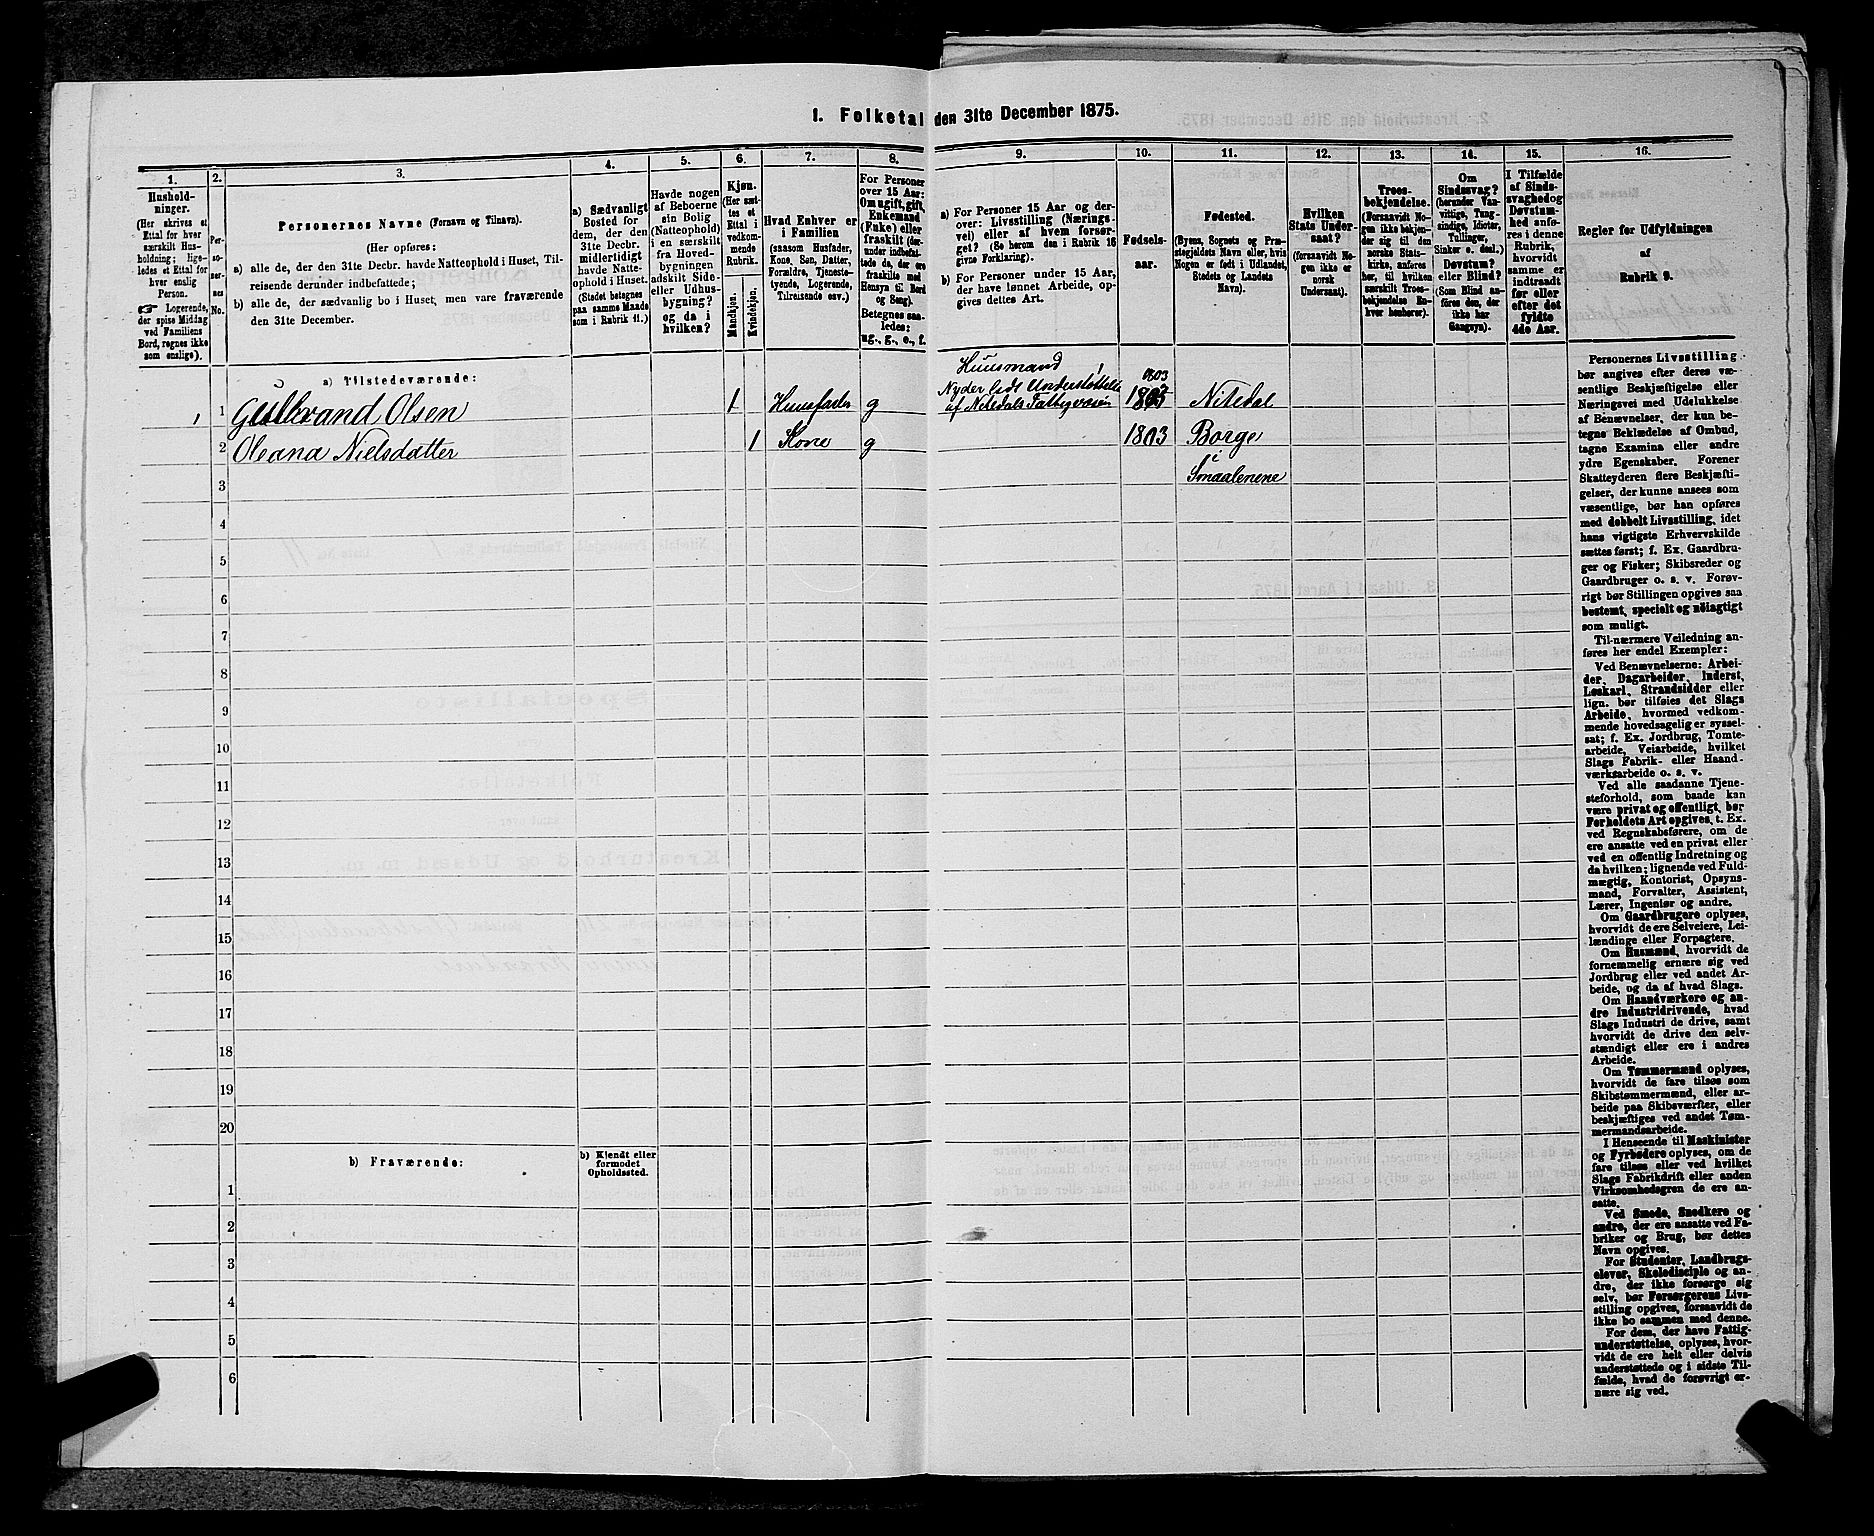 1. Folketal den 31te December 1875.
1.
2.
3.
4.
5.
6.
7.
8.
9.
10.
11.
12.
13.
14.
15.
16.
Hushold-
ninger.
(Her skrives et
Ettal for hver
særskilt Hus-
holdning; lige-
ledes et Ettal for
hver enslig
Person.
☞ Logerende,
der spise Middag
ved Familiens
Bord, regnes ikke
som enslige).
Per-
so-
ner-
nes
No.
Personernes Navne (Fornavn og Tilnavn).
(Her opføres:
a) alle de, der den 31te Decbr. havde Natteophold i Huset, Til-
reisende derunder indbefattede;
b) alle de, der sædvanlig bo i Huset, men vare fraværende
den 31te December.
a) Sædvanligt
Bosted for
dem, der den
31te Decbr.
midlertidigt
havde Natte-
ophold i Huset.
(Stedet betegnes
paa samme Maade
som i Rubrik 11.)
Havde nogen
af Beboerne
sin Bolig
(Natteophold)
i en særskilt
fra Hoved-
bygningen
adskilt Side-
eller Udhus-
bygning?
og da i
hvilken?
Kjøn.
(Her sæt-
tes et
Ettal i
vedkom-
mende
Rubrik.
Mandkjøn.
Kvindekjøn.
Hvad Enhver er
i Familien
(saasom Husfader,
Kone, Søn, Datter,
Forældre, Tjeneste-
tyende, Logerende,
Tilreisende osv.)
For Personer
over 15 Aar:
Om ugift, gift,
Enkemand
(Enke) eller
fraskilt (der-
under indbefat-
tede de, der ere
fraskilte med
Hensyn til Bord
og Seng).
Betegnes saa-
ledes:
ug., g., e., f.
a) For Personer 15 Aar og der-
over: Livsstilling (Nærings-
vei) eller af hvem forsør-
get? (Se herom den i Rubrik 16
givne Forklaring).
b) For Personer under 15 Aar,
der have lønnet Arbeide, op-
gives dettes Art.
Fødsels-
aar.
Fødested.
(Byens, Sognets og Præ-
stegjeldets Navn eller, hvis
Nogen er født i Udlandet,
Stedets og Landets
Navn).
Hvilken
Stats Under-
saat?
(forsaavidt No-
gen ikke er
norsk
Undersaat).
Troes-
bekjendelse.
(Forsaavidt No-
gen ikke bekjen-
der sig til den
norske Stats-
kirke, anføres
her, til hvilken
særskilt Troes-
bekjendelse En-
hver henhører).
Om
Sindssvag?
(herunder Van-
vittige, Tung-
sindige, Idioter,
Tullinger,
Sinker o. desl.)
Døvstum?
eller Blind?
(Som Blind an-
føres den, der
ikke har
Gangsyn).
I Tilfælde
af Sinds-
svaghed og
Døvstum-
hed anfø-
res i denne
Rubrik,
hvorvidt
samme er
indtraadt
før eller
efter det
fyldte
4de Aar.
Regler for Udfyldningen
af
Rubrik 9.
a) Tilstedeværende:
1 1 Gulbrand Olsen 1 Huusfader g Huusmand
Nyder fedt Understøttelse
af Nitedals Fattigvæsen 1803 Nitedal
2 Oleana Nielsdatter 1 Kone g 1803 Borge
Smaalenene
3
4
5
6
7
8
9
10
11
12
13
14
15
16
17
18
19
20
b) Fraværende:
b) Kjendt eller
formodet
Opholdssted.
1
2
3
4
5
6
Personernes Livsstilling
bør angives efter deres væ-
sentlige Beskjæftigelse eller
Næringsvei med Udelukkelse
af Benævnelser, der kun be-
tegne Beklædelse af Ombud,
tagne Examina eller andre
ydre Egenskaber. Forener
Skatteyderen flere Beskjæfti-
gelser, der kunne ansees som
væsentlige, bør han opføres
med dobbelt Livsstilling, idet
hans vigtigste Erhvervskilde
sættes først; f. Ex. Gaardbru-
ger og Fisker; Skibsreder og
Gaardbruger o. s. v. Forøv-
rigt bør Stillingen opgives saa
bestemt, specielt og nøiagtigt
som muligt.
Til nærmere Veiledning an-
føres her endel Exempler:
Ved Benævnelserne: Arbei-
der, Dagarbeider, Inderst,
Løskarl, Strandsidder eller
lign. bør tilføies det Slags
Arbeide, hvormed vedkom-
mende hovedsagelig er syssel-
sat; f. Ex. Jordbrug, Tomte-
arbeide, Veiarbeide, hvilket
Slags Fabrik- eller Haand-
værksarbeide o. s. v.
Ved alle saadanne Tjene-
steforhold, som baade kan
være privat og offentligt, bør
Forholdets Art opgives, t. Ex.
ved Regnskabsførere, om de
ere ansatte ved en privat eller
ved en offentlig Indretning og
da hvilken; lignende ved Fuld-
mægtig, Kontorist, Opsyns-
mand, Forvalter, Assistent,
Lærer, Ingeniør og andre.
Om Gaardbrugere oplyses,
hvorvidt de ere Selveiere, Lei-
lændinge eller Forpagtere.
Om Husmænd, hvorvidt de
fornemmelig ernære sig ved
Jordbrug eller ved andet Ar-
beide, og da af hvad Slags.
Om Haandværkere og an-
dre Industridrivende, hvad
Slags Industri de drive, samt
hvorvidt de drive den selv-
stændigt eller ere i andres
Arbeide.
Om Tømmermænd oplyses,
hvorvidt de fare tilsøs som
Skibstømmermænd, eller ar-
beide paa Skibsværfter, eller
beskjæftiges ved andet Tøm-
mermandsarbeide.
I Henseende til Maskinister
og Fyrbødere oplyses, om de
fare tilsøs eller ved hvilket
Slags Fabrikdrift eller anden
Virksomhedsgren de ere an-
satte.
Ved Smede, Snedkere og
andre, der ere ansatte ved Fa-
briker og Brug, bør dettes
Navn opgives.
For Studenter, Landbrugs-
elever, Skoledisciple og an-
dre, der ikke forsørge sig
selv, bør Forsørgerens Livs-
stilling opgives, forsaavidt de
ikke bo sammen med denne.
For dem, der have Fattig-
understøttelse, oplyses, hvor-
vidt de ere helt eller delvis
understøttede og i sidste Til-
fælde, hvad de forøvrigt er-
nære sig ved.